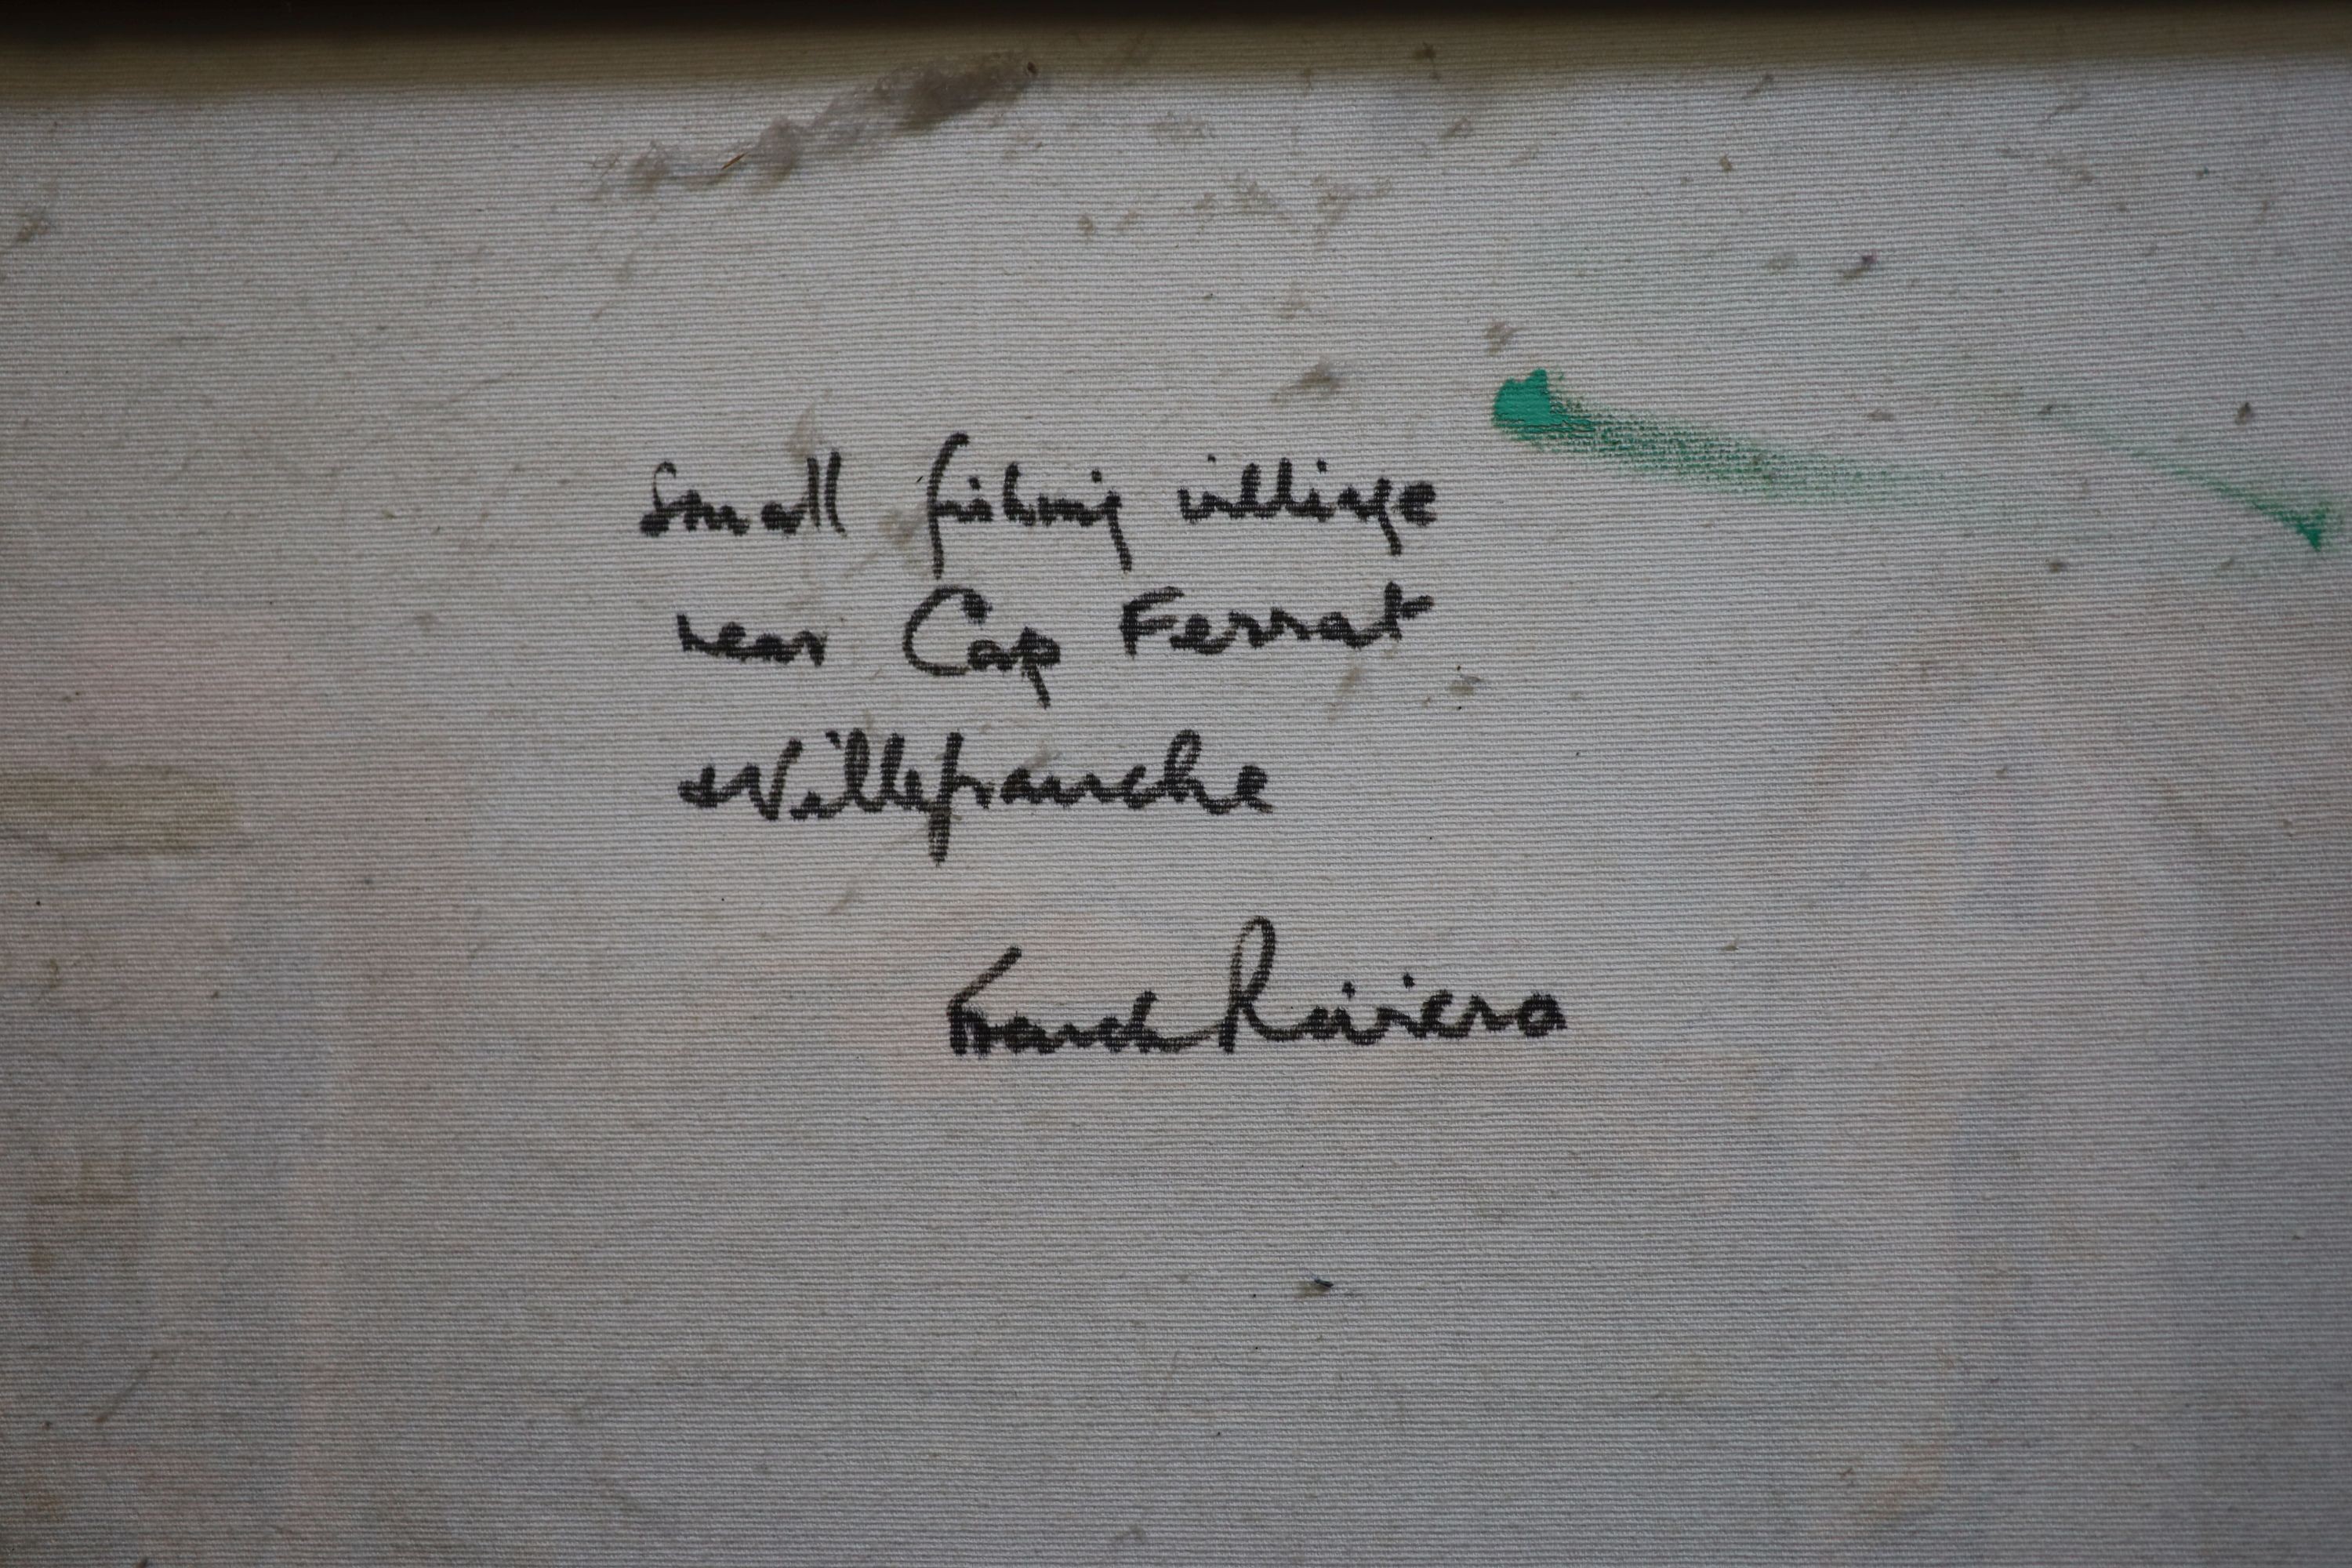 Small fishing village
near Cap Ferrat
+ Villefranche
French Riviera